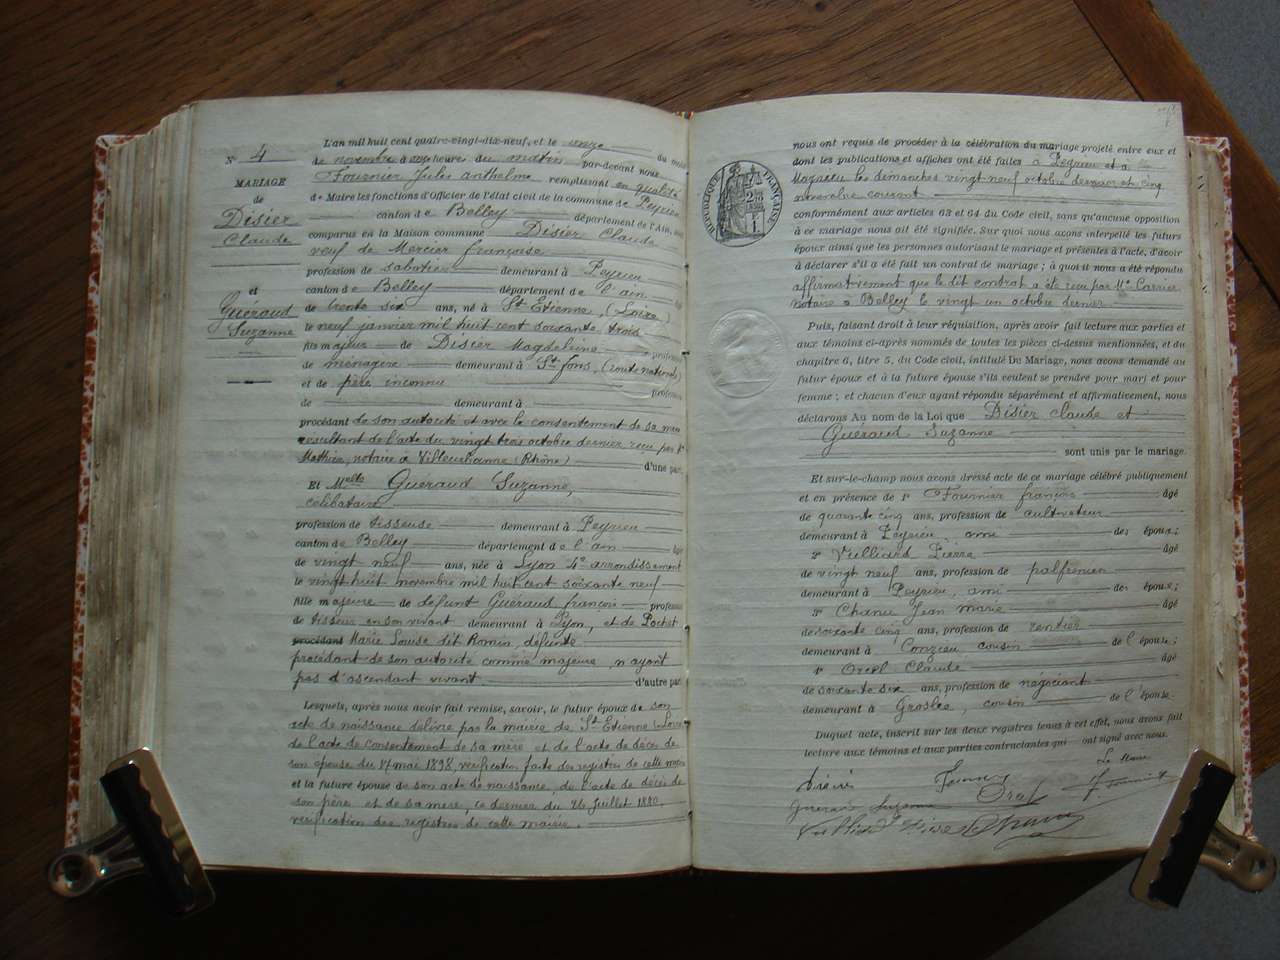 N° 4
MARIAGE
de
Disier
Claude
et
Guéraud
Suzanne
L'an mil huit cent quatre-vingt-dix-neuf, et le onze du mois
de novembre à onze heures du matin par-devant nous
Fournier Jules anthelme remplissant en qualité
de Maire les fonctions d'Officier de l'état civil de la commune de Peyrieu
canton de Belley département de l'Ain, sont
comparus en la Maison commune Disier Claude
veuf de Mercier françoise
profession de sabotier demeurant à Peyrieu
canton de Belley département de l'ain âgé
de trente six ans, né à St Etienne, (Loire)
le neuf janvier mil huit cent soixante trois
fils majeur de Disier Magdeleine profession
de ménagère demeurant à St fons, (route nationale)
et de père inconnu profession
de demeurant à
procédant de son autorité et avec le consentement de sa mère
resultant de l'acte du vingt trois octobre dernier reçu par Me
Mathieu, notaire à Villeurbanne (Rhône) d'une part
Et Melle Guéraud Suzanne,
celibataire
profession de tisseuse demeurant à Peyrieu
canton de Belley département de l'ain âgé
de vingt neuf ans, née à Lyon 4e arrondissement
le vingt huit novembre mil huit cent soixante neuf
fille majeure de défunt Guéraud françois profession
de tisseur en son vivant demeurant à Lyon, et de Pochet
procédant Marie Louise dit Romin, défunte
procédant de son autorité comme majeure, n'ayant
pas d'ascendant vivant d'autre part
Lesquels, après nous avoir fait remise, savoir, le futur époux de son
acte de naissance délivré par la mairie de St Etienne (Loire
de l'acte de consentement de sa mère et de l'acte de décès de
son épouse du 17 mai 1898, vérification faite des registres de cette mairie
et la future épouse de son acte de naissance, de l'acte de décès de
son père et de sa mère, ce dernier du 26 Juillet 1880,
vérification des registres de cette mairie.
RÉPUBLIQUE FRANÇAISE
nous ont requis de procéder à la célébration du mariage projeté entre eux et
dont les publications et affiches ont été faites à Peyrieu et à
les dimanches vingt neuf octobre dernier et cinq
novembre courant
conformément aux articles 63 et 64 du Code civil, sans qu'aucune opposition
à ce mariage nous ait été signifiée. Sur quoi nous avons interpellé les futurs
époux ainsi que les personnes autorisant le mariage et présentes à l'acte, d'avoir
à déclarer s'il a été fait un contrat de mariage ; à quoi il nous a été répondu
affirmativement que le dit contrat a été reçu par Me Carrier
notaire à Belley le vingt un octobre dernier
Puis, faisant droit à leur réquisition, après avoir fait lecture aux parties et
aux témoins ci-après nommés de toutes les pièces ci-dessus mentionnées, et du
chapitre 6, titre 5, du Code civil, intitulé Du Mariage, nous avons demandé au
futur époux et à la future épouse s'ils veulent se prendre pour mari et pour
femme ; et chacun d'eux ayant répondu séparément et affirmativement, nous
déclarons Au nom de la Loi que Disier claude et
Guéraud Suzanne
sont unis par le mariage.
Et sur-le-champ nous avons dressé acte de ce mariage célébré publiquement
et en présence de 1° Fournier françois âgé
de quarante cinq ans, profession de cultivateur
demeurant à Peyrieu, ami des époux ;
2° Vulliard Pierre âgé
de vingt neuf ans, profession de palfrenier
demeurant à Peyrieu, ami des époux ;
3° Chanu Jean marie âgé
de soixante cinq ans, profession de rentier
demeurant à Conzieu cousin de l'épouse ;
4° Orcel Claude âgé
de soixante six ans, profession de négociant
demeurant à Groslée, cousin de l'épouse
Duquel acte, inscrit sur les deux registres tenus à cet effet, nous avons fait
lecture aux témoins et aux parties contractantes qui ont signé avec nous.
Le Maire
Orcel
Guéraud Suzanne